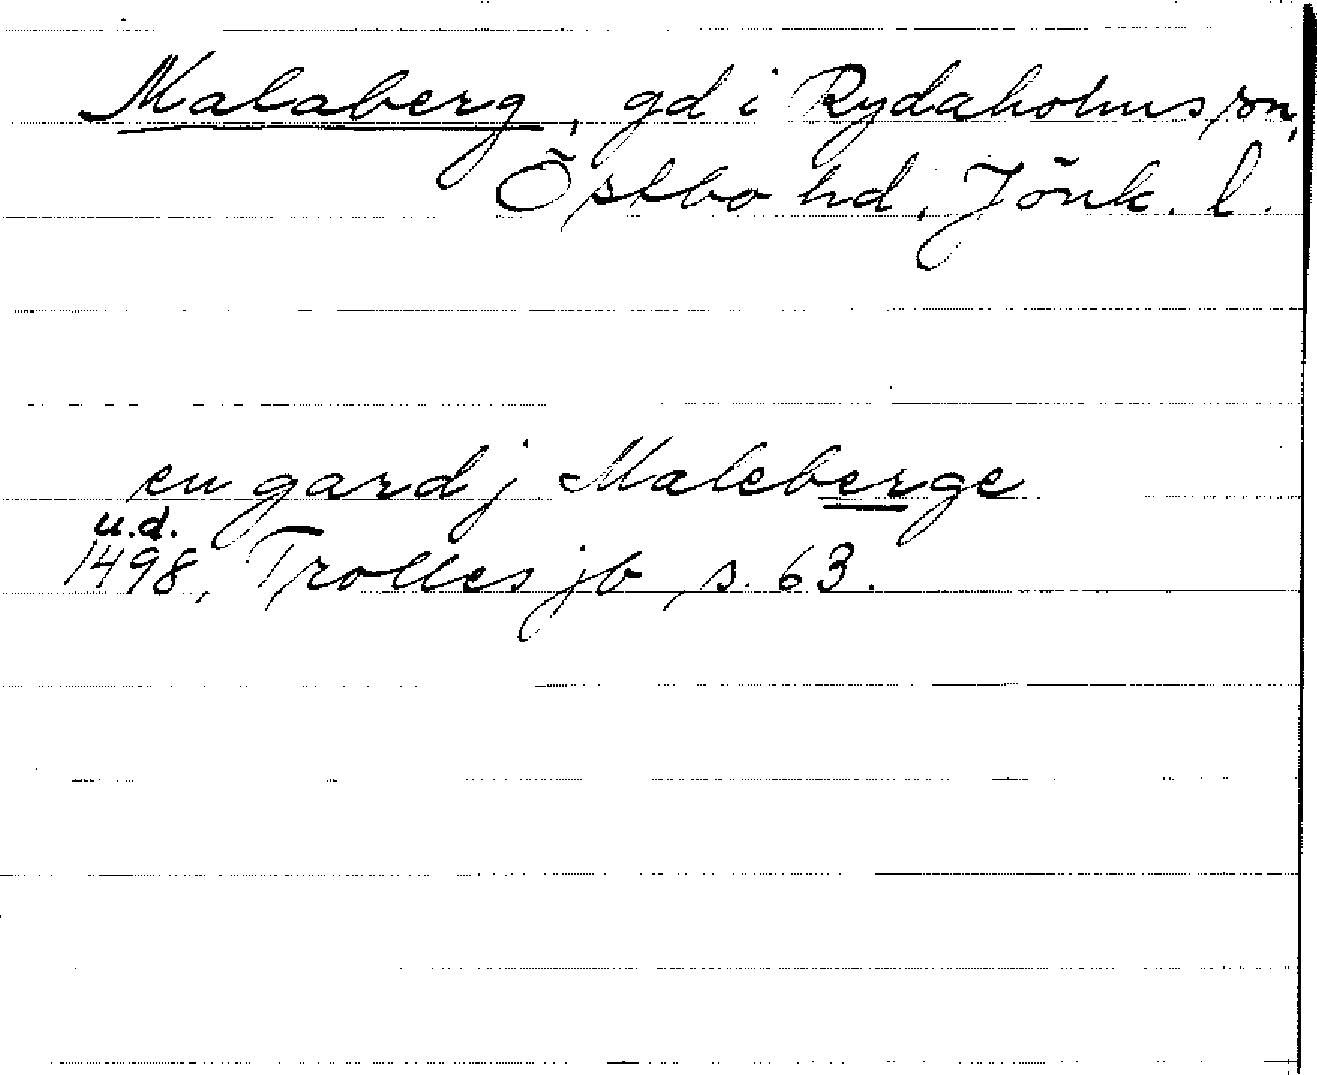 Malaberg, gd i Rydaholms sn,
Östbo hd, Jönk. l.
en gard j Maleberge
u.d.
1498, Trolles jb s. 63.